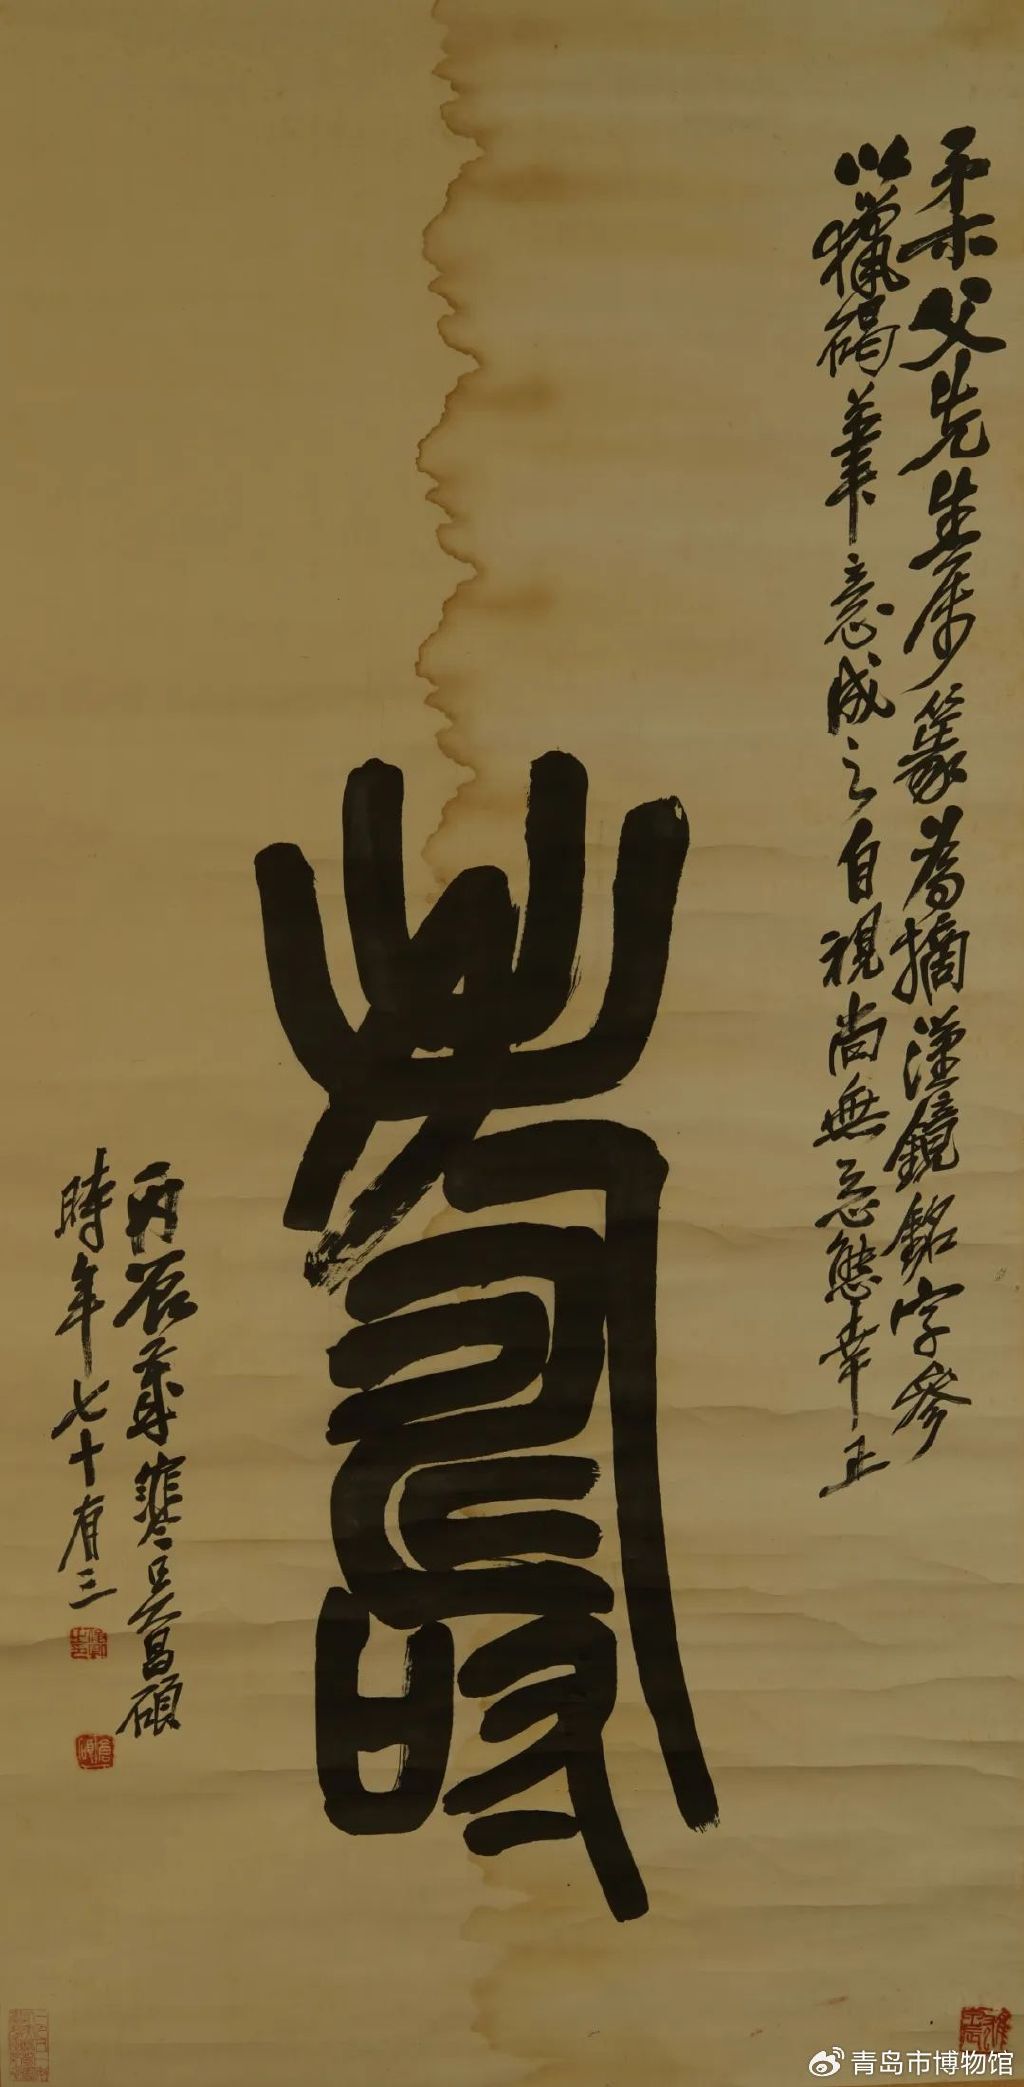 柔父先生属篆為摘漢鏡銘字參
以獵碣筆意成之自視尚無忘態幸正
壽
丙辰蕤賓吳昌碩
時年七十有三
青岛市博物馆